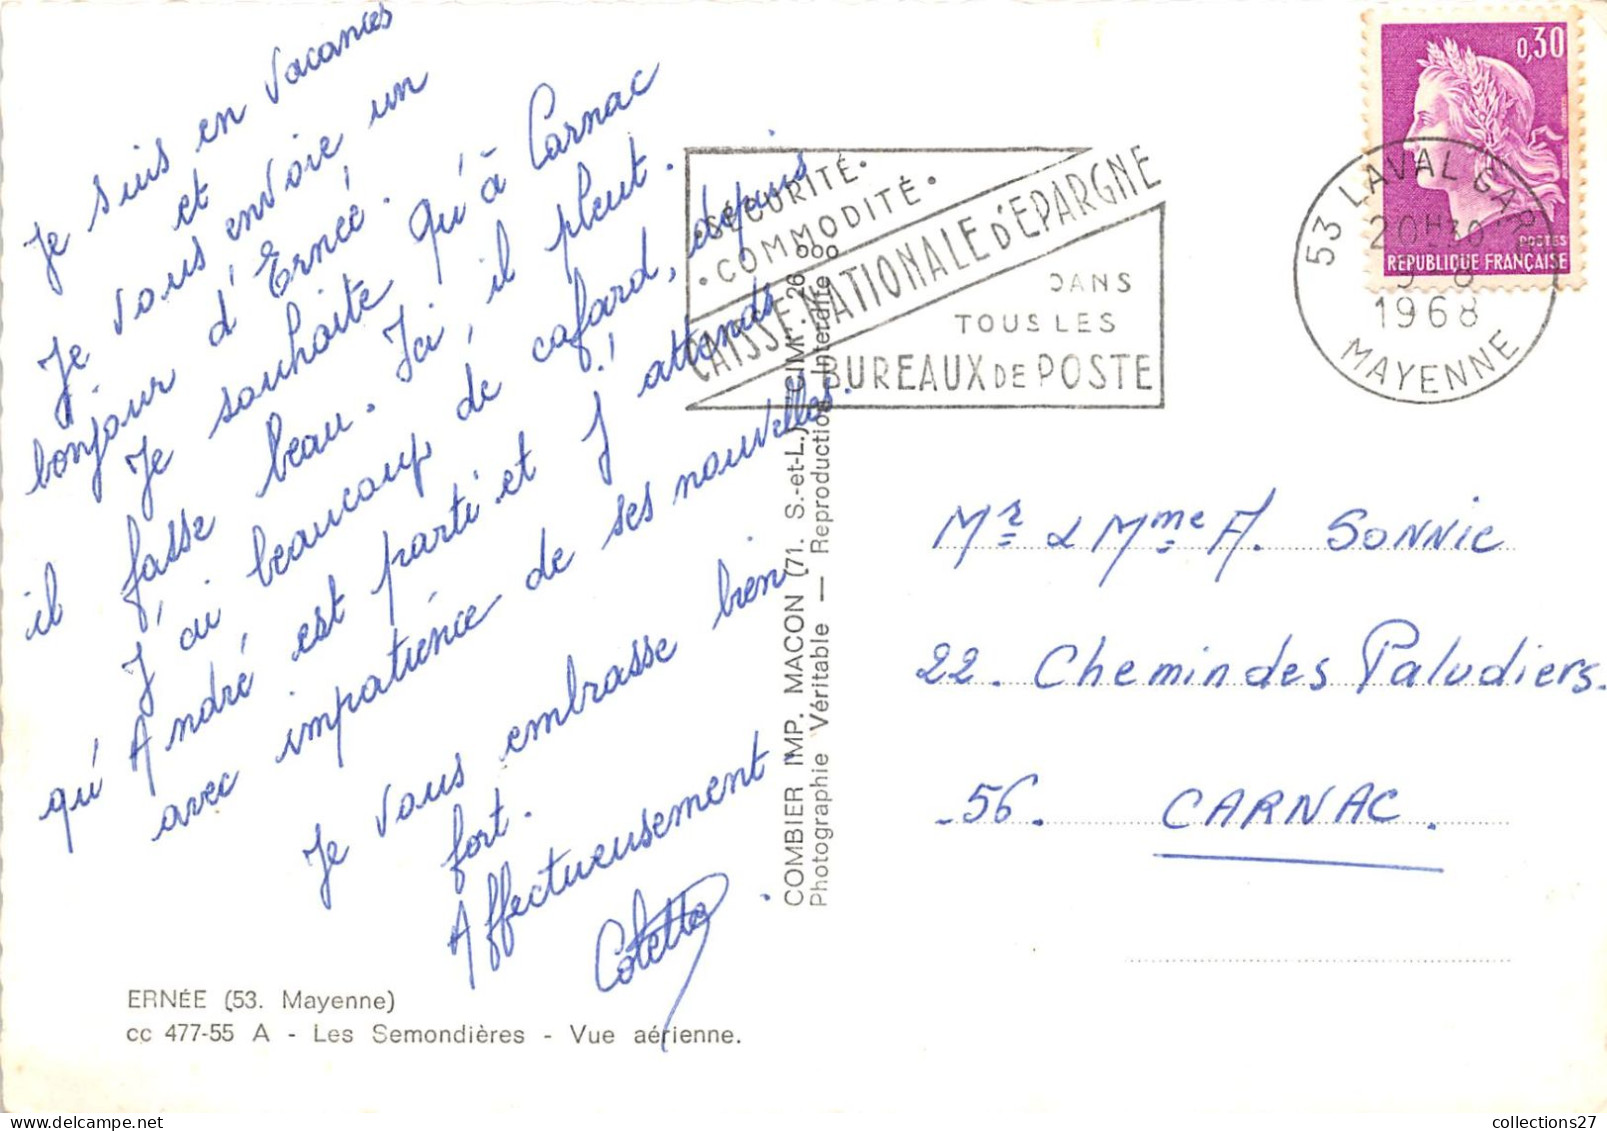 Je suis en vacances
et
Je vous envoie un
bonjour d'Ernée.
Je souhaite qu'à Carnac
il fasse beau. Ici, il pleut.
J'ai beaucoup de cafard, depuis
qu'André est parti et J'attends
avec impatience de ses nouvelles.
Je vous embrasse bien
fort.
Affectueusement.
Colette
ERNÉE (53. Mayenne)
cc 477-55 A - Les Semondières - Vue aérienne.
COMBIER IMP. MACON (71. S.-et-L.) "CIM" 26
Photographie Véritable — Reproduction Interdite
•SÉCURITÉ•
•COMMODITÉ•
CAISSE NATIONALE D'ÉPARGNE
DANS
TOUS LES
BUREAUX DE POSTE
53 LAVAL GARE
20H30
9-8
1968
MAYENNE
0,30
POSTES
REPUBLIQUE FRANÇAISE
Mr & Mme A. SONNIC
22. Chemin des Paludiers.
56. CARNAC.
collections27